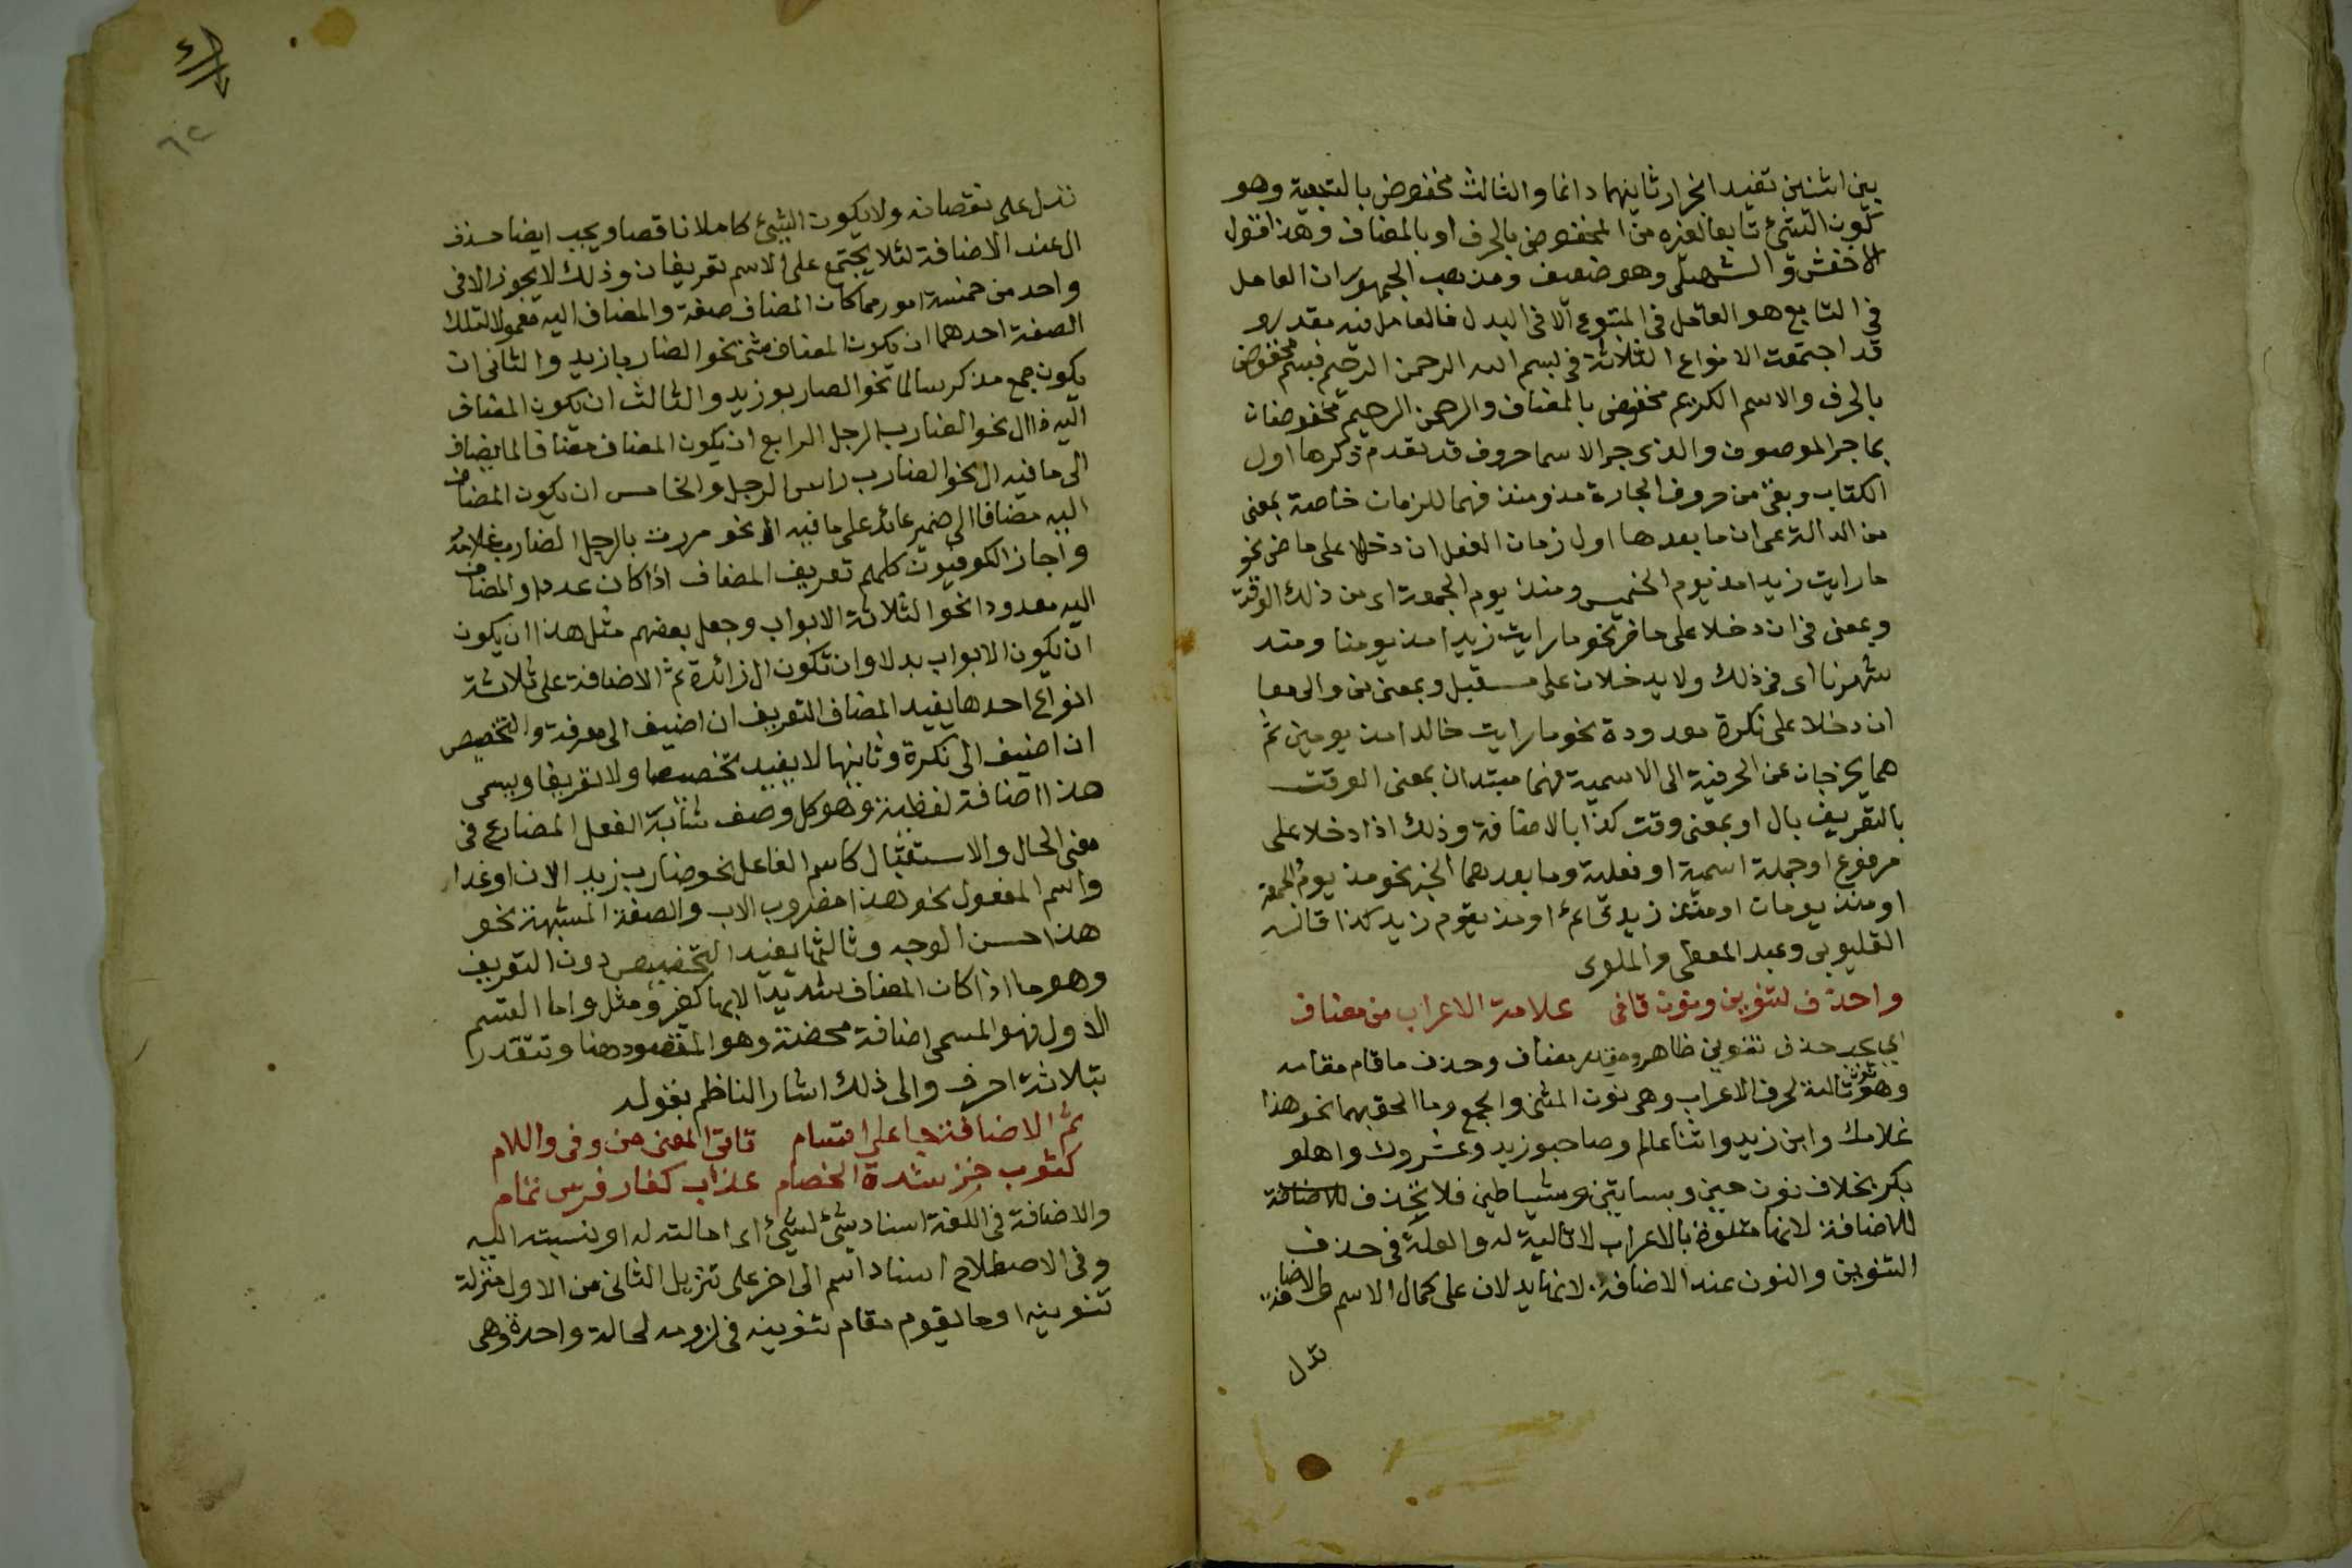 بين اثنين تفيد انجرار ثانيهما دائما والثالث مخفوض بالتبعية وهو
كون الشيء تابعا لغيره من المخفوض بالحرف او بالمضاف وهذا قول
الاخفش و السهيلي وهو ضعيف ومذهب الجمهور ان العامل
في التابع هو العامل في المتبوع الا في البدل فالعامل فيه مقدر و
قد اجتمعت الانواع الثلاثة في بسم الله الرحمن الرحيم فبسم مخفوض
بالحرف والاسم الكريم مخفوض بالمضاف والرحمن الرحيم مخفوضان
بما جر الموصوف والذي جر الاسما حروف قد تقدم ذكرها اول
الكتاب وبقي من حروف الجارة مذ ومنذ فهما للزمان خاصة بمعنى
من الدالة على ان ما بعدها اول زمان الفعل ان دخلا على ماض نحو
ما رايت زيدا مذ يوم الخميس ومنذ يوم الجمعة اي من ذلك الوقت
وبمعنى في ان دخلا على حاضر نحو ما رايت زيدا مذ يومنا ومنذ
شهرنا اي في ذلك ولا يدخلان على مستقبل وبمعنى من والى معا
ان دخلا على نكرة معدودة نحو ما رايت خالدا مذ يومين ثم
هما يخرجان عن الحرفية الى الاسمية فهما مبتدان بمعنى الوقت
بالتعريف بال او بمعنى وقت كذا بالاضافة وذلك اذا دخلا على
مرفوع او جملة اسمية او فعلية وما بعدهما الخبر نحو مذ يوم الجمعة
او منذ يومان او منذ زيد قائم او مذ يقوم زيد كذا قاله
القليوبي وعبد المعطي والملوي
واحذف لتنوين ونون قافي علامة الاعراب من مضاف
اي يجب حذف تنوين ظاهر ومقدر مضاف وحذف ما قام مقامه
وهو نون تالية لحرف الاعراب وهي نون المثنى والجمع وما الحق بهما نحو هذا
غلامك وابن زيد واثنا عالم وصاحبو زيد وعشروك واهلو
بكر بخلاف نون حين وبساتين وشياطين فلا تحذف للاضافة
للاضافة لانها متلوة بالاعراب لا تالية له والعلة في حذف
التنوين والنون عند الاضافة لانهما يدلان على كمال الاسم والاضافة
تدل
تدل على نقصانه ولا يكون الشيئ كاملا ناقصا ويجب ايضا حذف
ال عند الاضافة لئلا يجتمع على الاسم تعريفان وذلك لا يجوز الا في
واحد من خمسة امور مما كان المضاف صفة والمضاف اليه معمولا لتلك
الصفة احدهما ان يكون المضاف مثنى نحو الضاربا زيد والثاني ان
يكون جمع مذكر سالما نحو الضاربو زيد والثالث ان يكون المضاف
اليه فيه ال نحو الضارب الرجل الرابع ان يكون المضاف مضافا لما يضاف
الى ما فيه ال نحو الضارب راس الرجل والخامس ان يكون المضاف
اليه مضافا الى ضمير عائد على ما فيه ال نحو مررت بالرجل الضارب غلامه
واجاز الكوفيون كلهم تعريف المضاف اذا كان عددا والمضاف
اليه معدودا نحو الثلاثة الابواب وجعل بعضهم مثل هذا ان يكون
ان يكون الابواب بدلا وان تكون ال زائدة ثم الاضافة على ثلاثة
انواع احدها يفيد المضاف التعريف ان اضيف الى معرفة والتخصيص
ان اضيف الى نكرة وثانيها لا يفيد تخصيصا ولا تعريفا ويسمى
هذا اضافة لفظية وهو كل وصف شابه الفعل المضارع في
معنى الحال والاستقبال كاسم الفاعل نحو ضارب زيد الان او غدا
واسم المفعول نحو هذا مضروب الاب والصفة المشبهة نحو
هذا حسن الوجه وثالثها يفيد التخصيص دون التعريف
وهو ما اذا كان المضاف شديد الابهام كغير ومثل واما القسم
الاول فهو المسمى اضافة محضة وهو المقصود هنا وتتقدر
بثلاثة احرف والى ذلك اشار الناظم بقوله
ثم الاضافة جا على اقسام تاتي المعنى من وفي واللام
كثوب خز شدة الخصام عذاب كفار فرس تمام
والاضافة في اللغة اسناد شيئ لشيئ اي امالته له او نسبته اليه
وفي الاصطلاح اسناد اسم الى اخر على تنزيل الثاني من الاول منزلة
تنوينه او ما يقوم مقام تنوينه في لزومه لحالة واحدة وهي